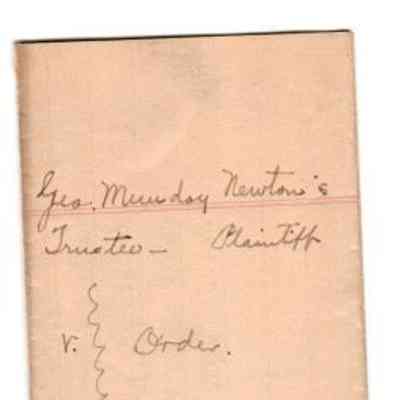 Geo. Munday Newton's
Trustee - Plaintiff
v. Order.